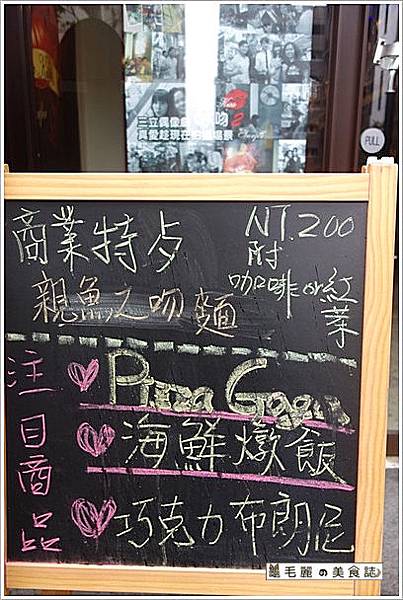 三立偶像劇 吻2
真愛趁現在拍攝場景
PULL
商業特歺
NT.200
附
咖啡or紅茶
親魚之吻麵
注目商品
Pizza Gogo
海鮮燉飯
巧克力布朗尼
毛麗の美食誌